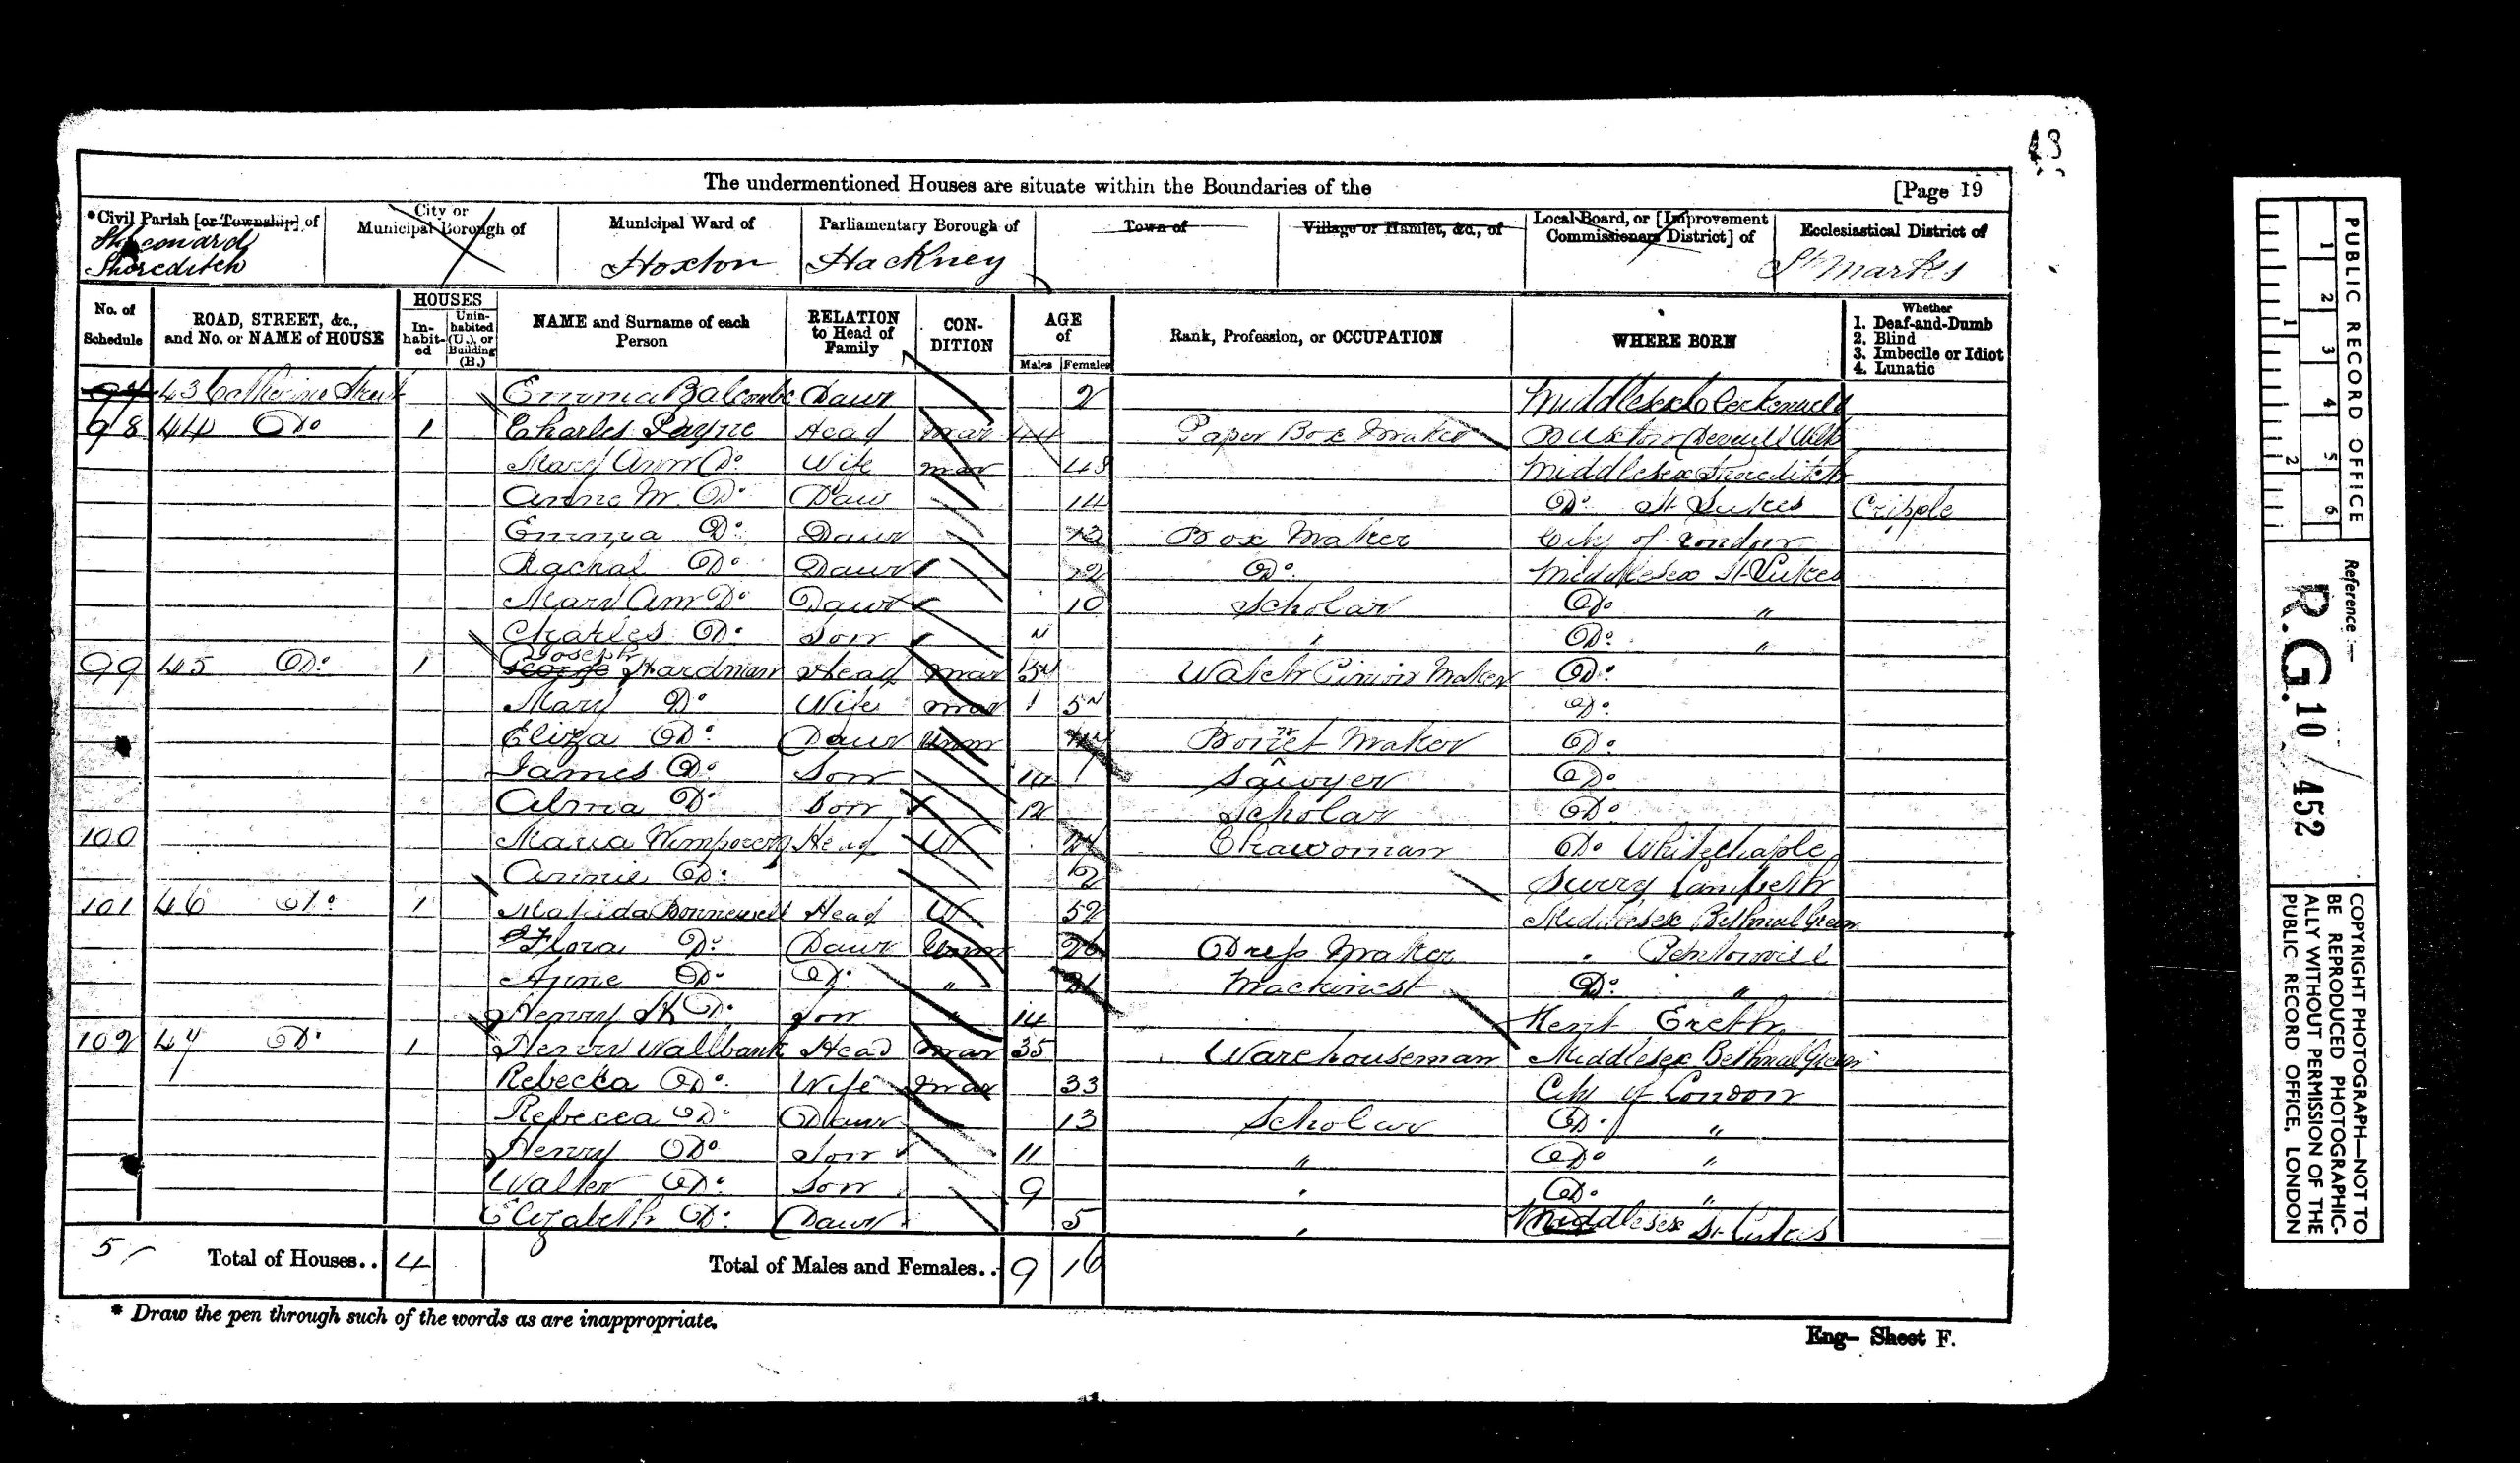 43
The undermentioned Houses are situate within the Boundaries of the [Page 19
*Civil Parish [or Township] of
City or Municipal Borough of
Municipal Ward of
Parliamentary Borough of
Town of
Village or Hamlet, &c., of
Local Board, or [Improvement Commissioners District] of
Ecclesiastical District of
Shoreditch
Hoxton
Hackney
St Marks
No. of Schedule
ROAD, STREET, &c., and No. or NAME of HOUSE
HOUSES
In-habit-ed
Unin-habited (U.), or Building (B.)
NAME and Surname of each Person
RELATION to Head of Family
CON-DITION
AGE of
Males Females
Rank, Profession, or OCCUPATION
WHERE BORN
Whether
1. Deaf-and-Dumb
2. Blind
3. Imbecile or Idiot
4. Lunatic
43 Catherine Street Emma Balcombe Daur 2 Middlesex Clerkenwell
98 44 Do 1 Charles Payne Head Mar 44 Paper Box Maker
Mary Ann Do Wife Mar 48 Middlesex Shoreditch
Annie M. Do Daur 14 Do St Lukes Cripple
Emma Do Daur Box Maker City of London
Rachal Do Daur 12 Do Middlesex St Lukes
Mary Ann Do Daur 10 Scholar Do "
Charles Do Son Do "
99 45 Do 1 Joseph Hardman Head Mar Watch Maker Do
Mary Do Wife Mar Do
Eliza Do Daur Unm Bonnet Maker Do
James Do Son 14 Sawyer Do
Alma Do Son 12 Scholar Do
100 Maria Head W Chawoman Do Whitechaple
Annie Do Surry Lambeth
101 46 Do 1 Matilda Bonnewell Head W 52 Middlesex Bethnal Green
Flora Do Daur Unm 26 Dress Maker
Do Do " 21 Machinest Do "
Henry Do Son " 14 Kent Ereth
102 47 Do 1 Henry Wallbank Head Mar 35 Warehouseman Middlesex Bethnal Green
Rebecka Do Wife Mar 33 City of London
Rebecca Do Daur 13 Scholar Do "
Henry Do Son 11 " Do "
Walter Do Son 9 " Do "
Elizabeth Do Daur 5 " Middlesex St Lukes
5 Total of Houses.. 4 Total of Males and Females.. 9 16
* Draw the pen through such of the words as are inappropriate.
Eng- Sheet F.
PUBLIC RECORD OFFICE
1 2 3 4 5 6
1 2
Reference :-
R.G. 10 / 452
COPYRIGHT PHOTOGRAPH—NOT TO
BE REPRODUCED PHOTOGRAPHIC-
ALLY WITHOUT PERMISSION OF THE
PUBLIC RECORD OFFICE, LONDON